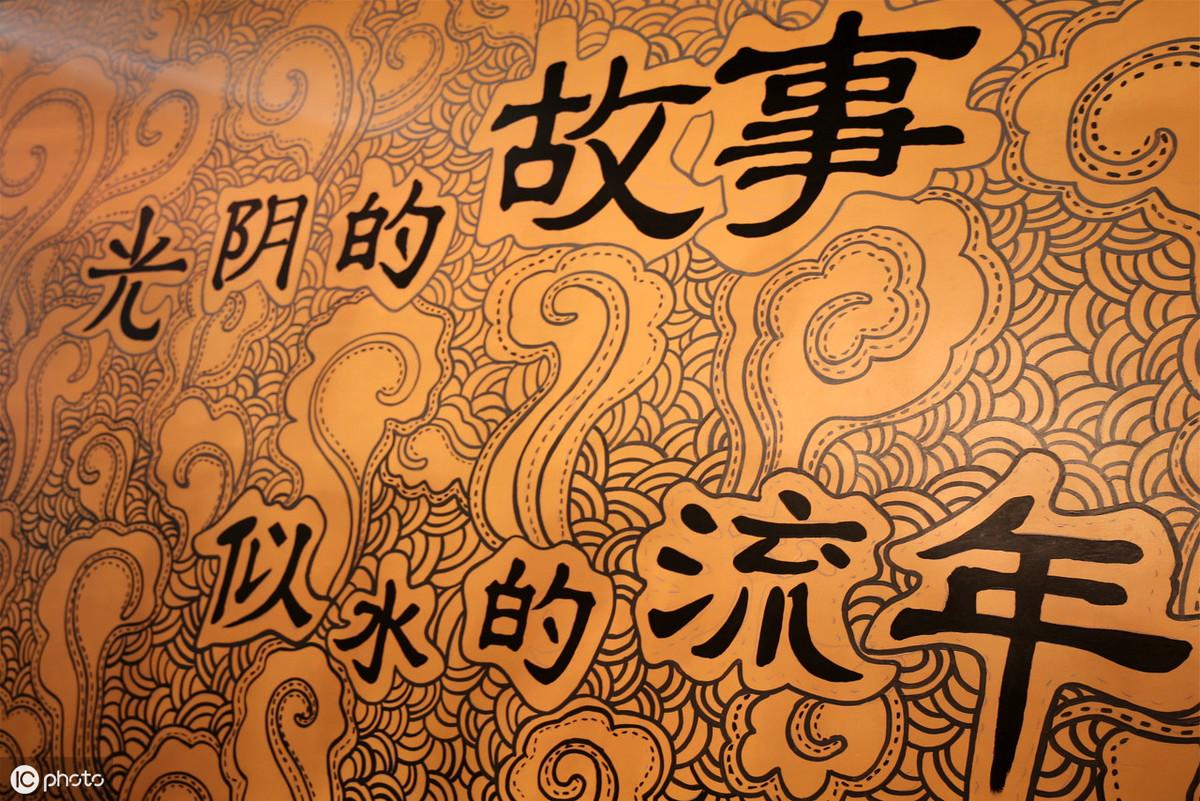 光阴的故事
似水的流年
IC photo